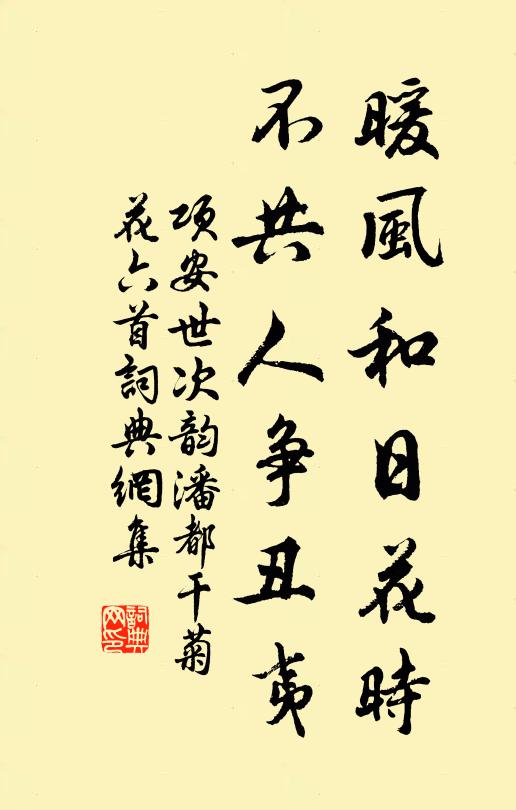 暖風和日花時
不共人争丑夷
項安世次韵潘都干菊
花六首詞典網集
詞典
网印